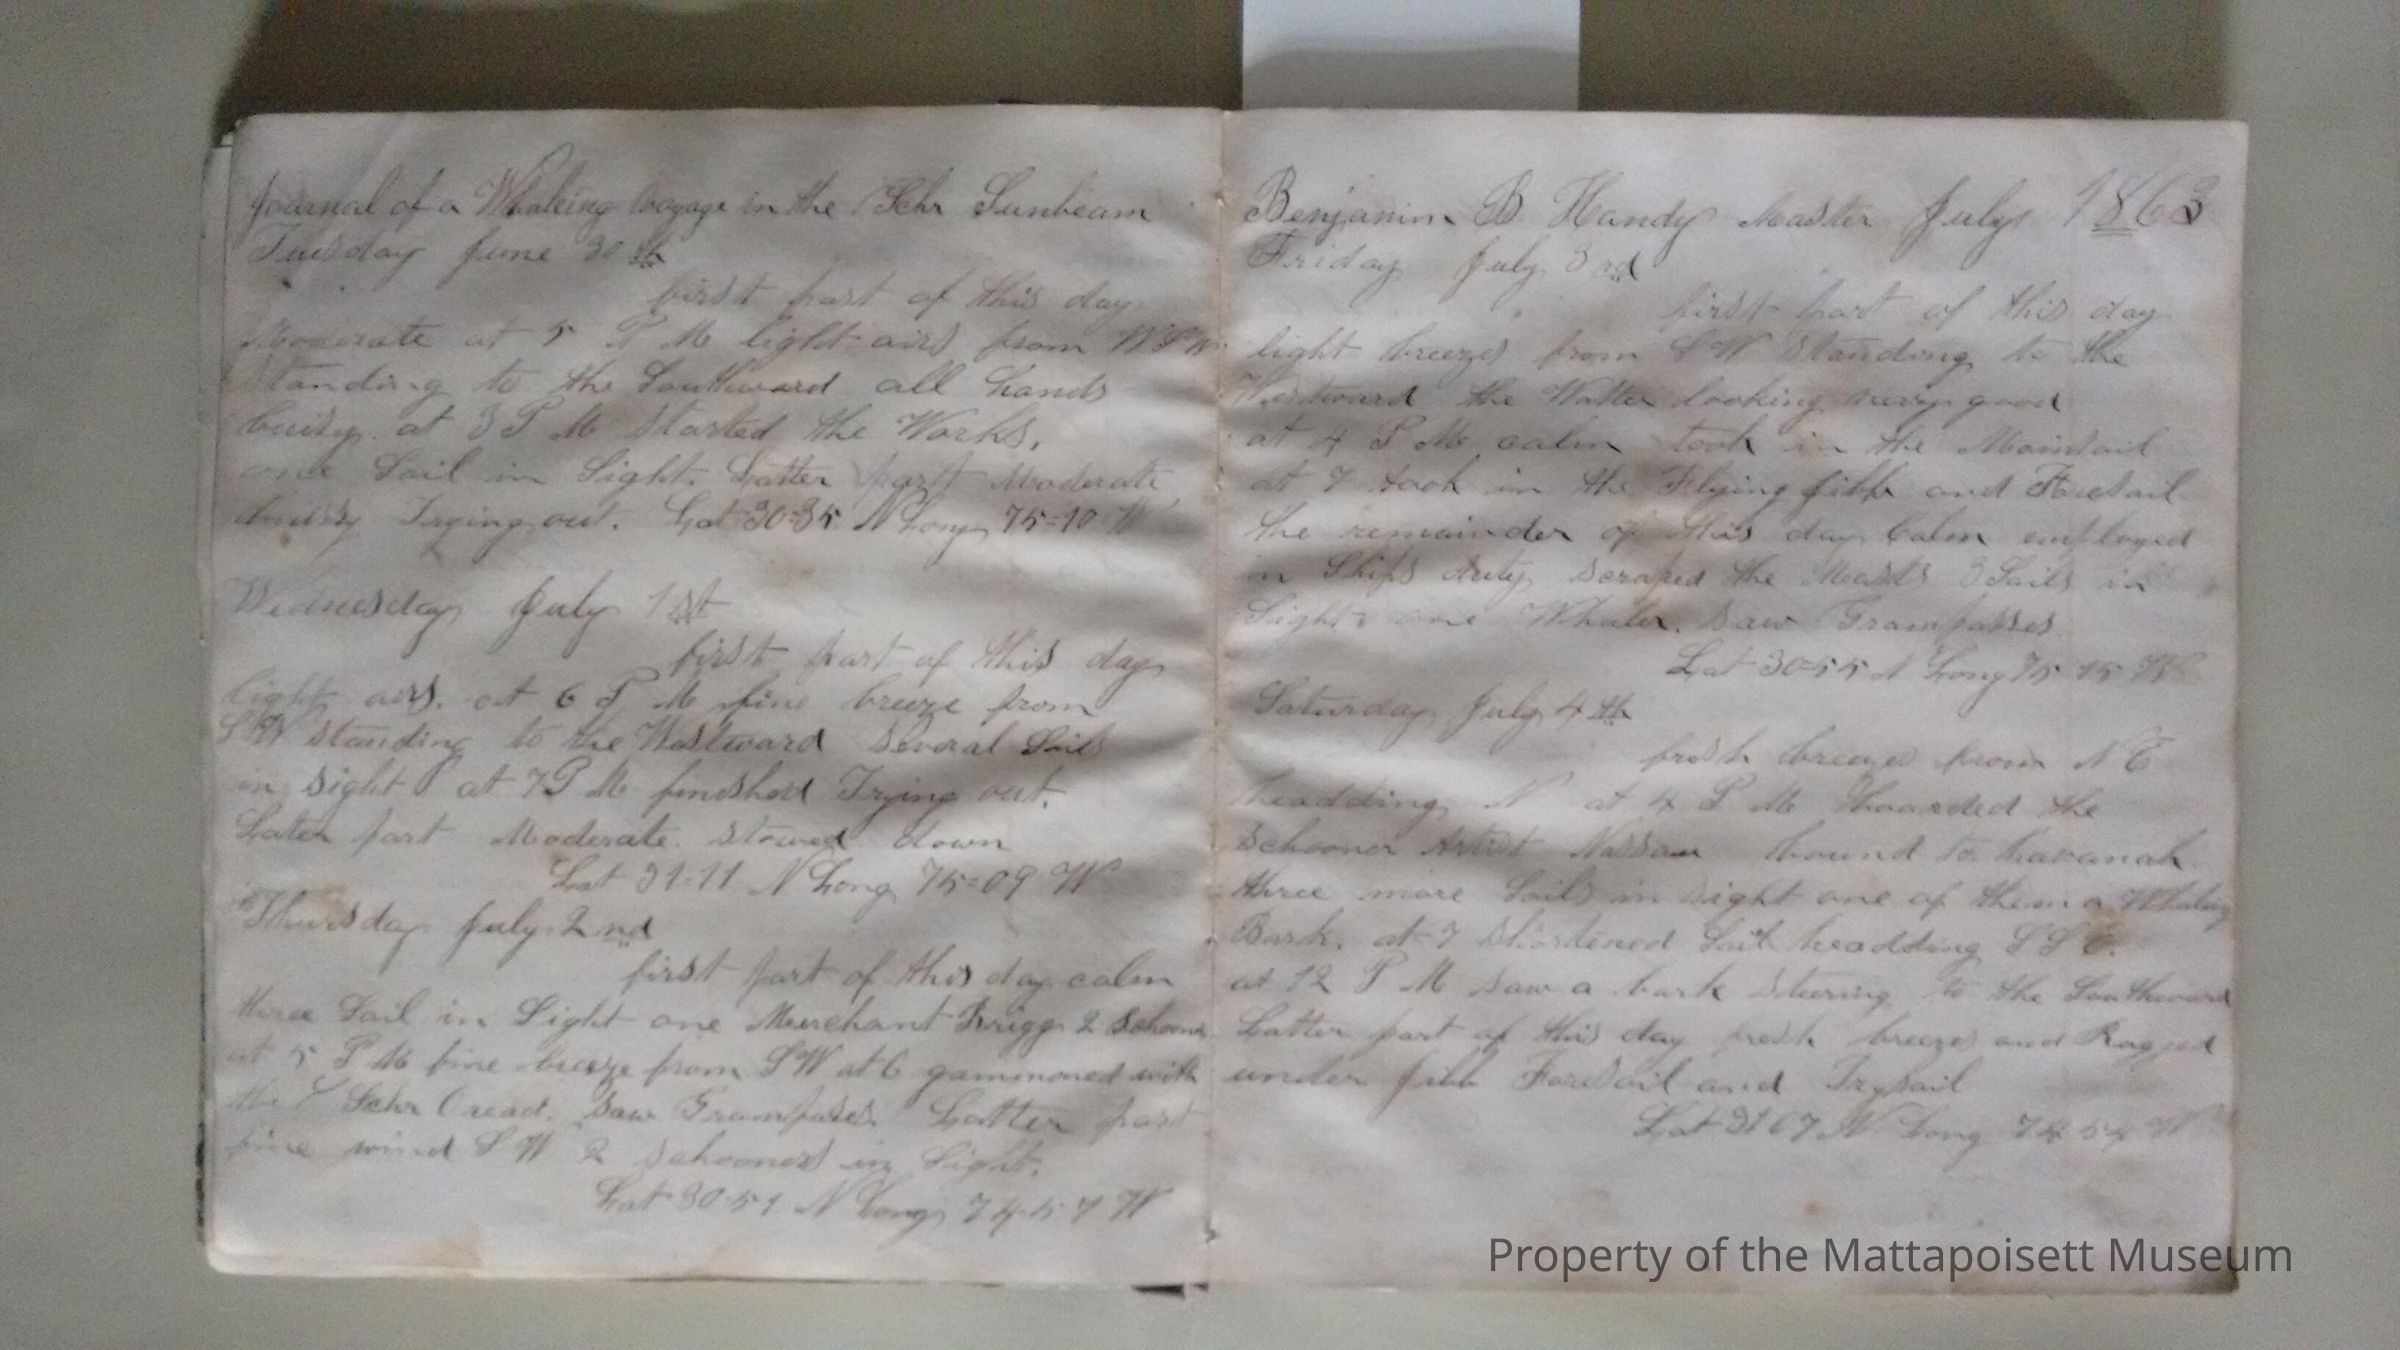 Journal of a Whaleing Voyage in the Schr Sunbeam
Tuesday June 30th
first part of this day
Moderate at 5 P M light airs from WSW
Standing to the Southward all hands
buisy at 3 P M started the Works.
one Sail in Sight. Latter part Moderate
buisy Trying out. Lat 30=35 N Long 75=10 W
Wednesday July 1st
first part of this day
light airs. at 6 P M fine breeze from
SW standing to the Westward several Sails
in sight at 7 P M finished Trying out.
Later part Moderate. stowed down
Lat 31-11 N Long 75=09 W
Thursday July 2nd
first part of this day calm
three Sail in Sight one Merchant Brigg 2 Schooners
at 5 P M fine breeze from SW at 6 gammoned with
the Schr Oread. saw Grampuses. Latter part
fine wind S W 2 schooners in Sight.
Lat 30-51 N Long 74-57 W
Benjamin B Handy Master July 1863
Friday July 3rd
first part of this day
light breezes from S W Standing to the
Westward the Watter looking very good
at 4 P M calm took in the Mainsail
at 7 took in the Flying jibb and Foresail
the remainder of this day Calm employed
in Ships duty scraped the Masts 3 Sails in
Sight one Whaler. saw Grampasses.
Lat 30=55 N Long 75 15 W
Saturday July 4th
fresh breezes from N E
headding N at 4 P M boarded the
schooner Artist Nassau bound to havanah
three more Sails in sight one of them a Whaling
Bark. at 7 shortened Sail headding S S E.
at 12 P M saw a bark steering to the Southward
Latter part of this day fresh breezes and Rugged
under jibb Foresail and Trysail
Lat 31 07 N Long 74 54 W
Property of the Mattapoisett Museum